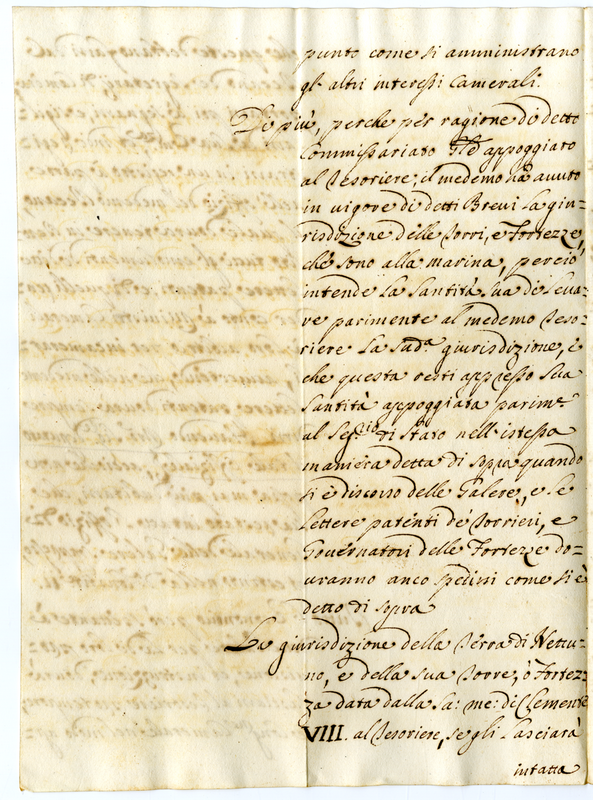 punto come si amministrano
gl'altri interessi Camerali.
Di più, perche per ragione di detto
Commissariato appoggiato
al Tesoriere, il medemo ha avuto
in vigore di detti Brevi la giu=
risdizione delle Torri, e Fortezze,
che sono alla marina, perciò
intende la Santità Sua di leva=
re parimente al medemo Teso=
riere la sud.a giurisdizione, e
che questa resti appresso Sua
Santità appoggiata parim.e
al Seg.rio di Stato nell'istessa
maniera detta di sopra quando
si è discorso delle Galere, e le
lettere patenti de' Torrieri, e
Governatori delle Fortezze do=
uranno anco spedirsi come si è
detto di sopra
La giurisdizione della Terra di Nettu=
no, e della sua Torre, ò Fortez=
za data dalla sa: me: di Clemente
VIII. al Tesoriere, se gli lasciarà
intatta